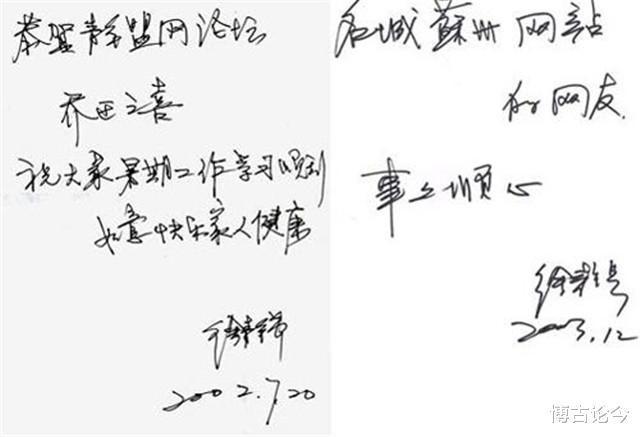 恭贺盟网论坛
乔迁之喜
祝大家暑期工作学习顺利
如意快乐家人健康
2002.7.20
名城蘇州网站
的网友
事事顺心
2003.12
博古论今